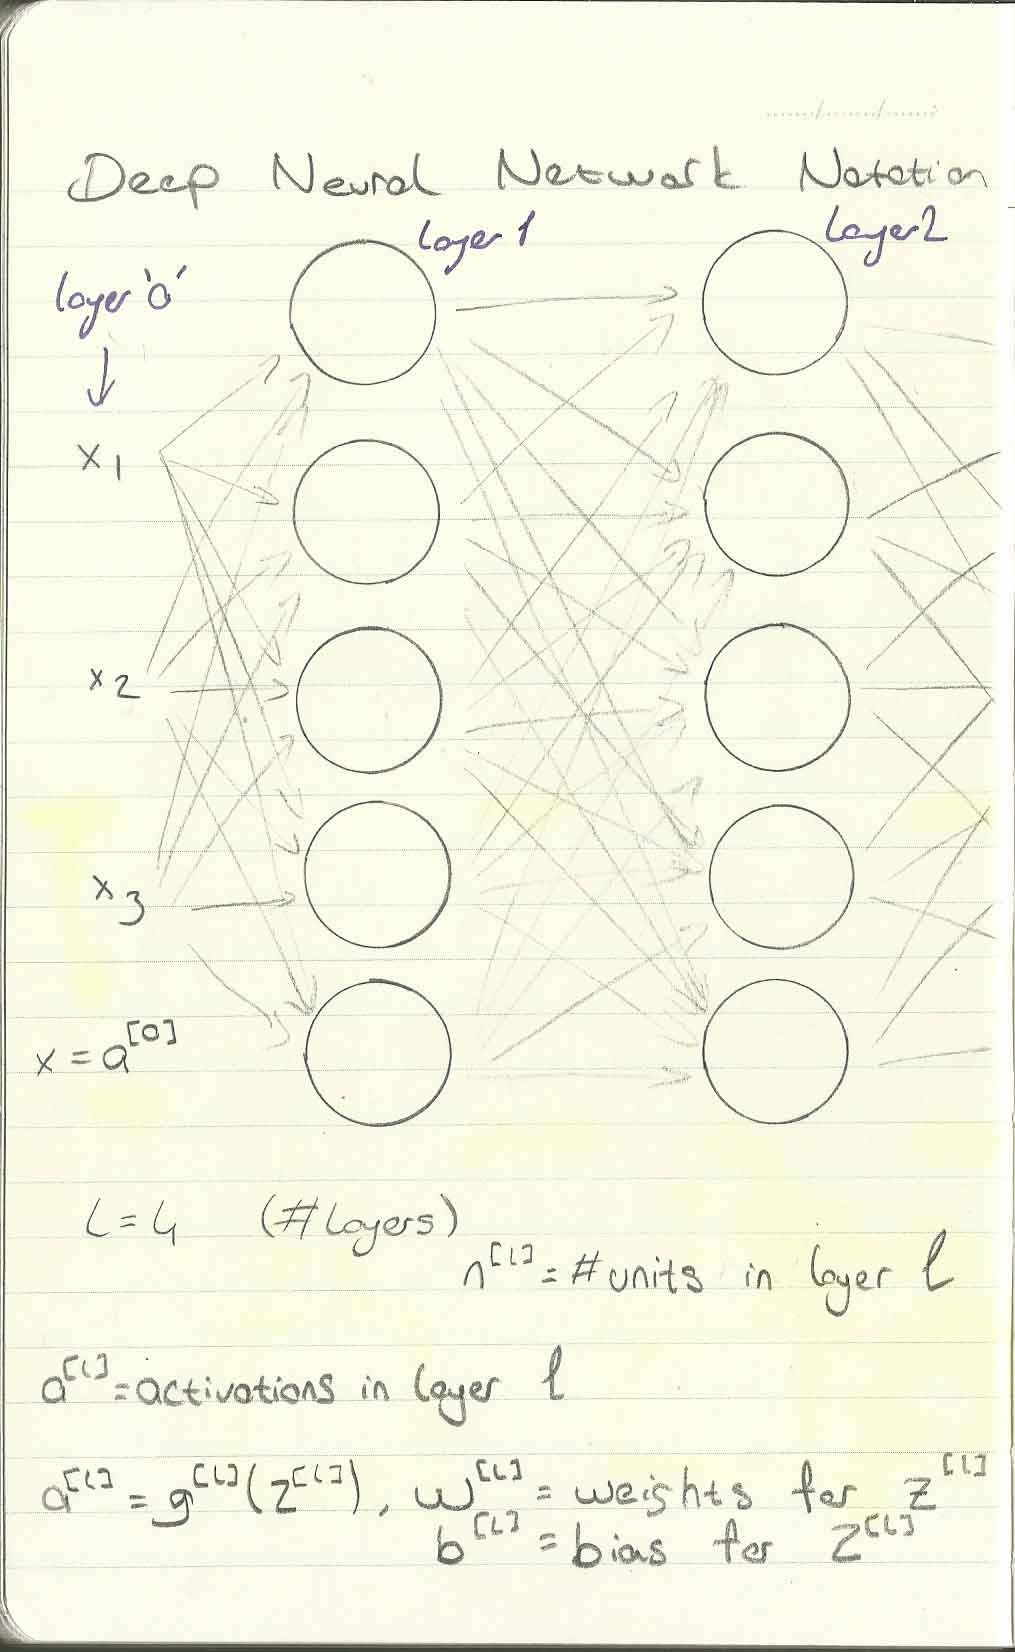 Deep Neural Network Notation
layer 1
layer 2
layer '0'
x1
x2
x3
x = a^[0]
L = 4 (# layers)
n^[l] = # units in layer l
a^[l] = activations in layer l
a^[l] = g^[l](z^[l]), w^[l] = weights for z^[l]
b^[l] = bias for z^[l]